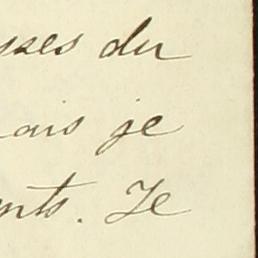 du
ais je
nts. Je